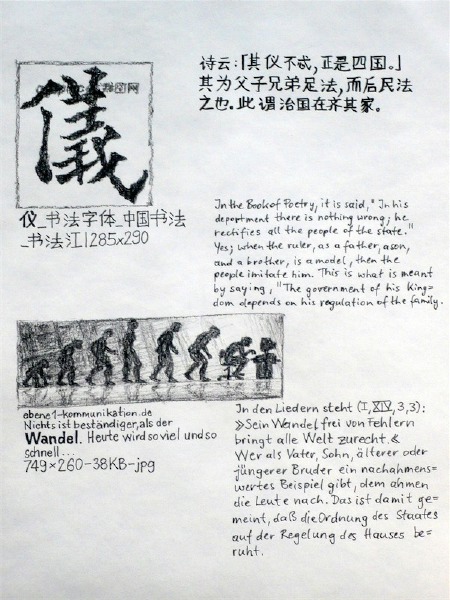 诗云:「其仪不忒,正是四国。」
其为父子兄弟足法,而后民法
之也。此谓治国在齐其家。
儀
仪_书法字体_中国书法
_书法江|285x290
In the Book of Poetry, it is said, "In his
deportment there is nothing wrong; he
rectifies all the people of the state."
Yes; when the ruler, as a father, a son,
and a brother, is a model, then the
people imitate him. This is what is meant
by saying, "The government of his King=
dom depends on his regulation of the family.
ebene1-kommunikation.de
Nichts ist beständiger, als der
Wandel. Heute wird so viel und so
schnell...
749×260-38KB-jpg
In den Liedern steht (I,XIV,3,3):
»Sein Wandel frei von Fehlern
bringt alle Welt zurecht.«
Wer als Vater, Sohn, älterer oder
jüngerer Bruder ein nachahmens=
wertes Beispiel gibt, dem ahmen
die Leute nach. Das ist damit ge=
meint, daß die Ordnung des Staates
auf der Regelung des Hauses be=
ruht.